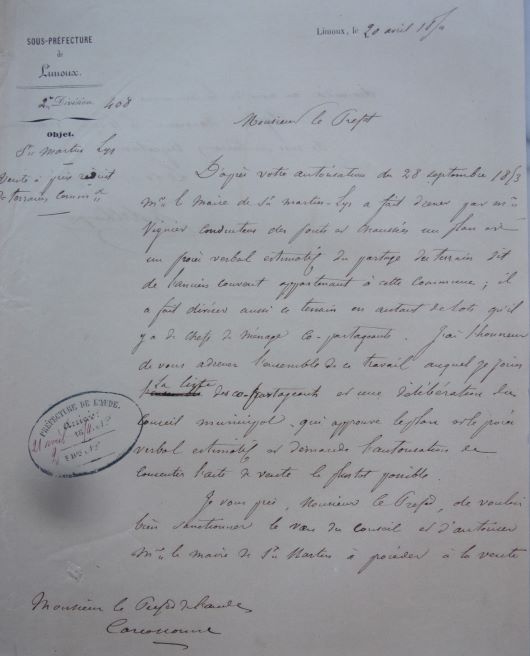 SOUS-PRÉFECTURE
de
Limoux.
2me Division 408
Objet.
St Martin Lys
Vente à prix réduit
de terrains commx
Limoux, le 20 avril 18
Monsieur le Préfet
D'après votre autorisation du 28 septembre 1853
Mr le Maire de St martin-Lys a fait dresser par mr
Vignier conducteur des ponts et chaussées un plan et
un procès verbal estimatif du partage des terrain dit
de l'ancien couvent appartenant à cette commune ; il
a fait diviser aussi ce terrain en autant de lots qu'il
y a de chefs de ménage co-partageants. J'ai l'honneur
de vous adresser l'ensemble de ce travail auquel je joins
la liste des co-partageants et une délibération du
Conseil municipal qui approuve le plan et le procès
verbal estimatif et demande l'autorisation de
consentir l'acte de vente le plustot possible.
Je vous prie, Monsieur le Préfet, de vouloir
bien sanctionner le vœu du conseil et d'autoriser
Mr le maire de St Martin à procéder à la vente
PRÉFECTURE DE L'AUDE.
Arrivée
21 avril
Monsieur le Préfet de l'aude
Carcassonne